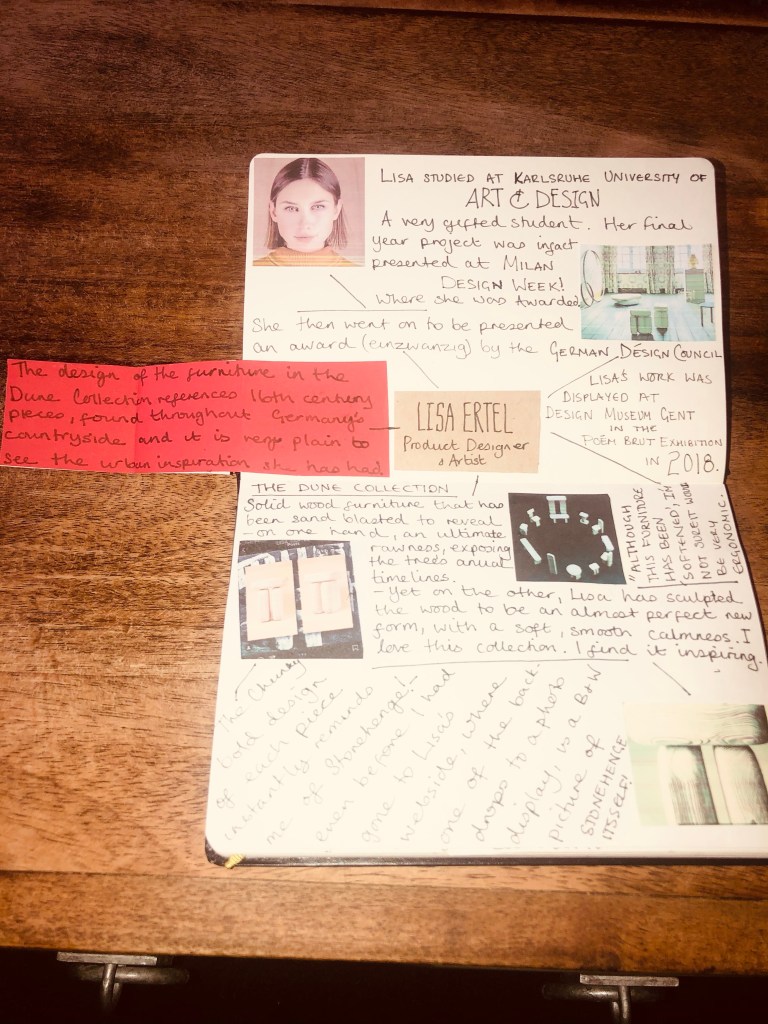 LISA STUDIED AT KARLSRUHE UNIVERSITY OF
ART & DESIGN
A very gifted student. Her final
year project was infact
presented at MILAN
DESIGN WEEK!
where she was Awarded
She then went on to be presented
an award (einzwanzig) by the GERMAN DESIGN COUNCIL
The design of the furniture in the
Dune Collection references 16th century
pieces, found throughout Germany's
countryside and it is very plain to
see the urban inspiration she has had
LISA ERTEL
Product Designer
& Artist
LISA'S WORK WAS
DISPLAYED AT
DESIGN MUSEUM GENT
IN THE
POËM BRUT EXHIBITION
IN 2018.
THE DUNE COLLECTION
Solid wood furniture that has
been sand blasted to reveal
- on one hand, an ultimate
rawness, exposing
the trees anual
timelines.
- Yet on the other, Lisa has sculpted
the wood to be an almost perfect new
form, with a soft, smooth calmness. I
love this collection. I find it inspiring.
"ALTHOUGH
THIS FURNITURE
HAS BEEN
'SOFTENED', IM
NOT SURE IT WOULD
BE VERY
ERGONOMIC.
The Chunky
bold design
of each piece
instantly reminds
me of Stonehenge! -
even before I had
gone to Lisa's
webside, where
one of the back
drops to a photo
display, is a B+W
picture of
STONEHENGE
ITSSELF!